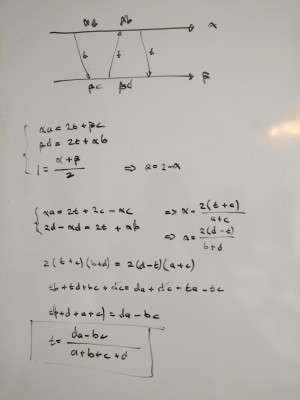 αa αb α
t t t
βc βd β
αa = 2t + βc
βd = 2t + αb
1 = (α + β)/2 ⇒ β = 2 - α
αa = 2t + 2c - αc ⇒ α = 2(t + c)/(a + c)
2d - αd = 2t + αb ⇒ α = 2(d - t)/(b + d)
2(t + c)(b + d) = 2(d - t)(a + c)
tb + td + bc + dc = da + dc - ta - tc
t(b + d + a + c) = da - bc
t = (da - bc)/(a + b + c + d)